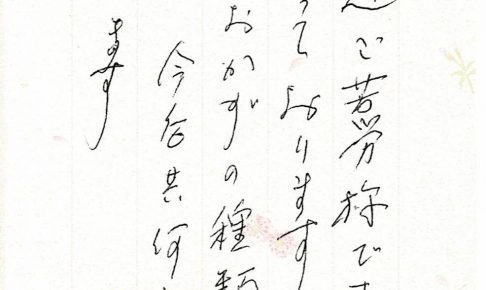 ご苦労様です
っております
おかずの種類
今后共何
ます